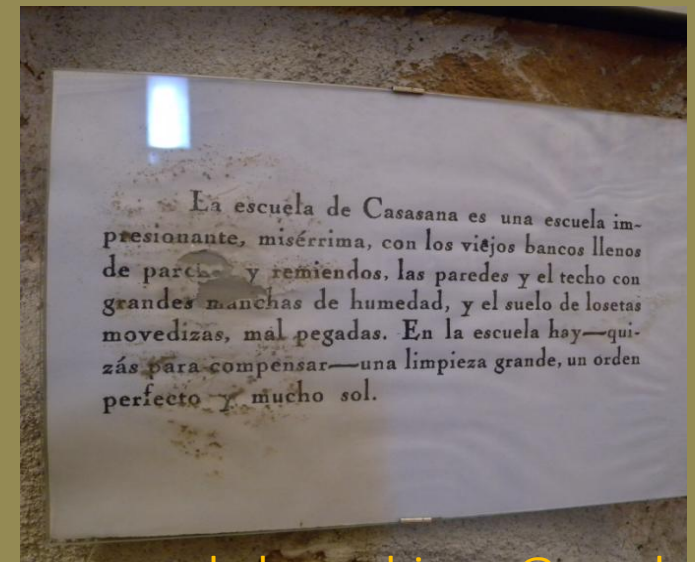 La escuela de Casasana es una escuela im-
presionante, misérrima, con los viejos bancos llenos
de y remiendos, las paredes y el techo con
grandes manchas de humedad, y el suelo de losetas
movedizas, mal pegadas. En la escuela hay—qui-
zás para compensar—una limpieza grande, un orden
perfecto y mucho sol.